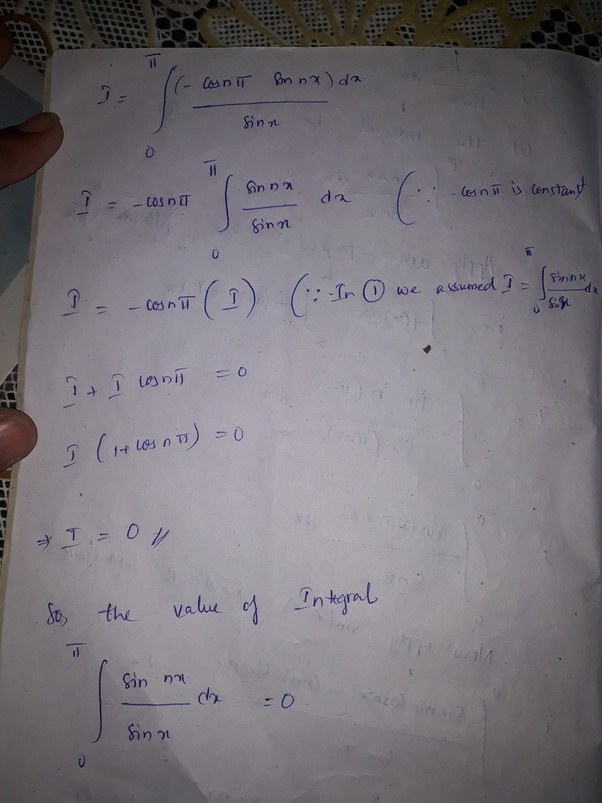 I = ∫₀^π (- cosnπ sin nx) dx / sinx
I = -cosnπ ∫₀^π sin nx / sinx dx (∵ -cosnπ is constant
I = -cosnπ (I) (∵ -In ① we assumed I = ∫₀^π sinnx / sinx dx
I + I cosnπ = 0
I (1+ cosnπ) = 0
⇒ I = 0 //
So, the value of Integral
∫₀^π sin nx / sinx dx = 0